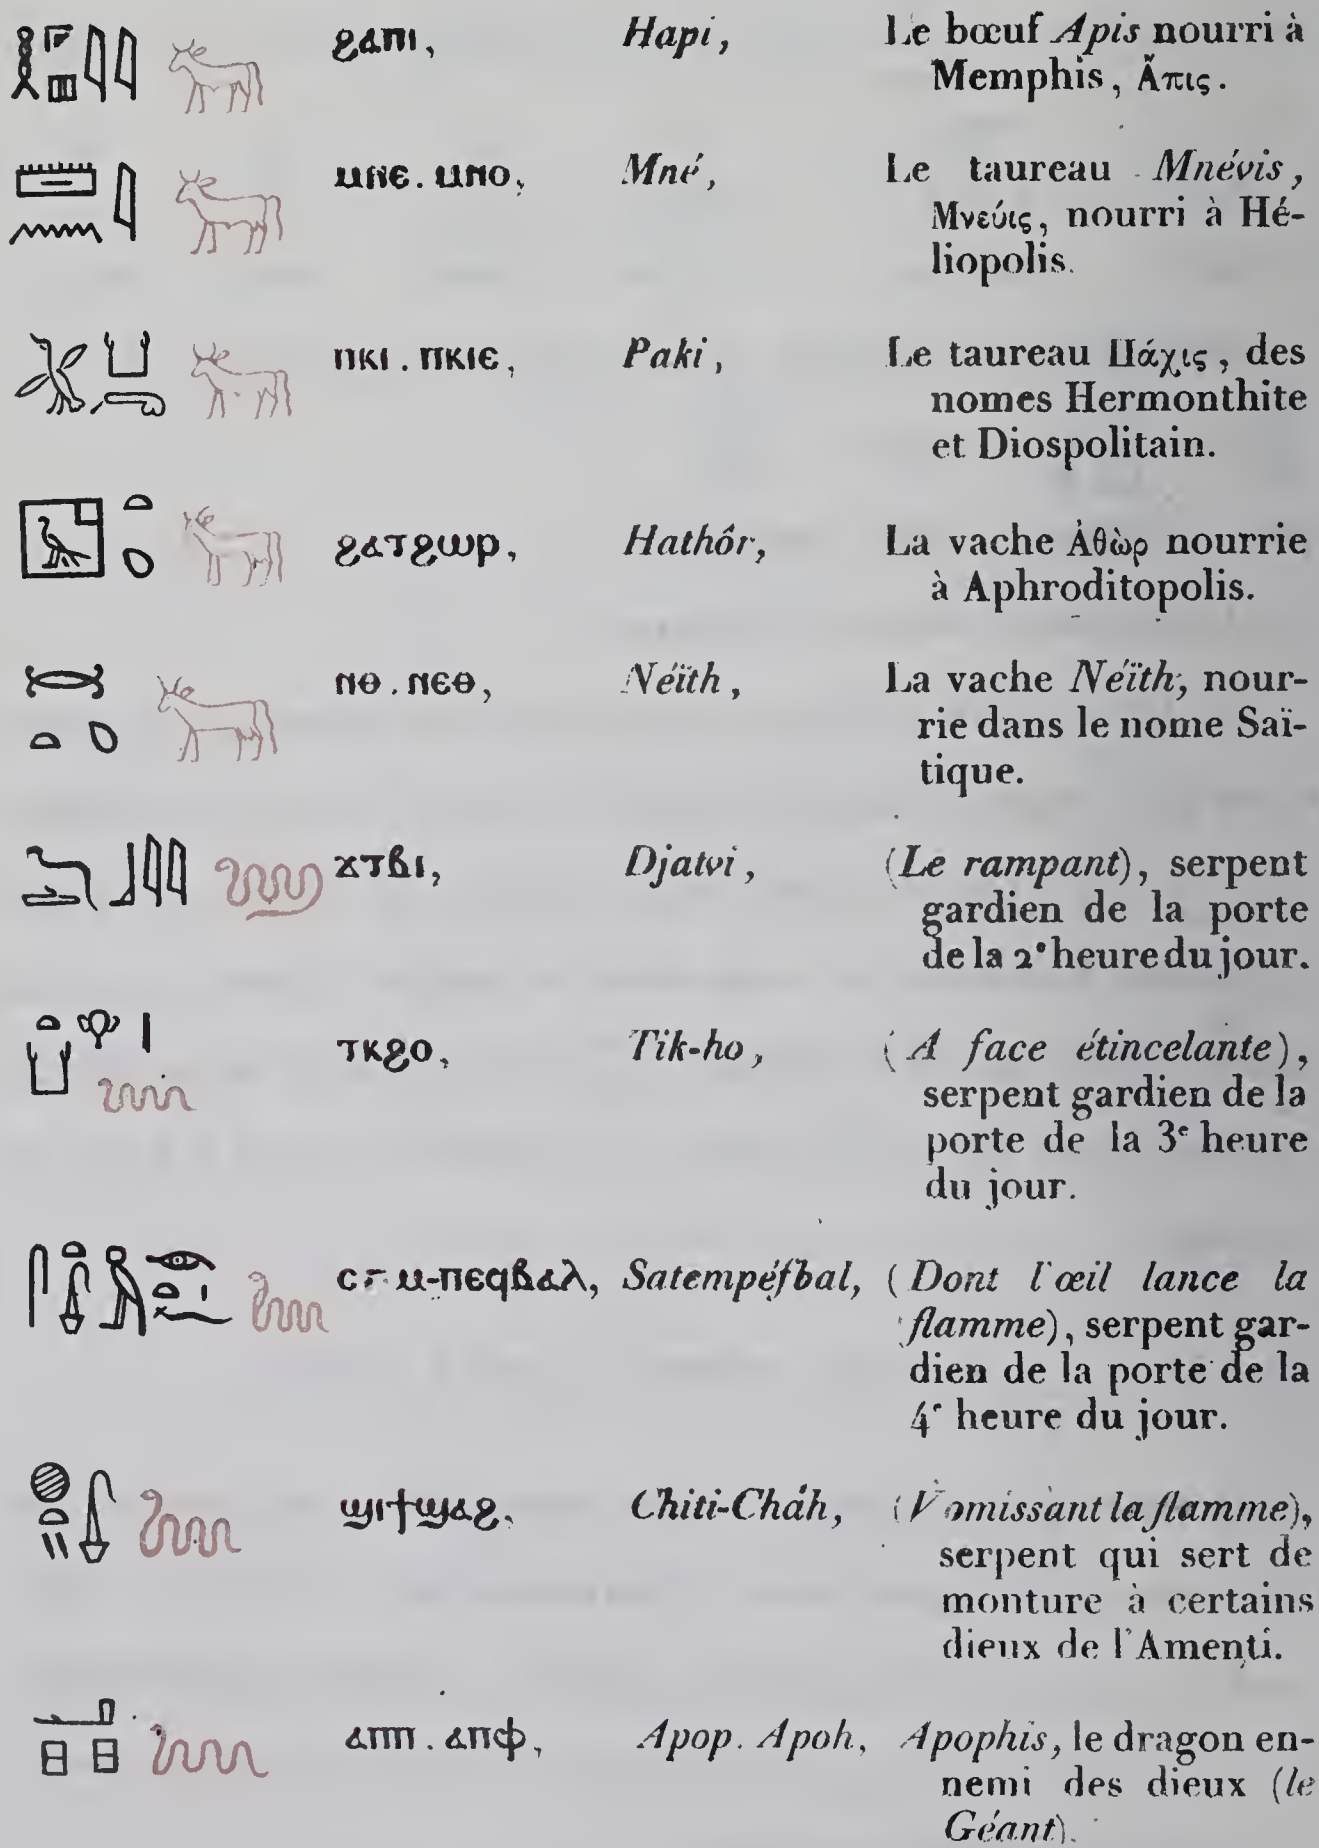 ϩⲁⲡⲓ, Hapi, Le bœuf Apis nourri à
Memphis, Ἄπις.
ⲙⲛⲉ. ⲙⲛⲟ, Mné, Le taureau Mnévis,
Μνεύις, nourri à Hé-
liopolis.
ⲡⲕⲓ. ⲡⲕⲓⲉ, Paki, Le taureau Πάχις, des
nomes Hermonthite
et Diospolitain.
ϩⲁⲧϩⲱⲣ, Hathôr, La vache Ἀθὼρ nourrie
à Aphroditopolis.
ⲛⲑ. ⲛⲉⲑ, Néïth, La vache Néïth, nour-
rie dans le nome Saï-
tique.
ϫⲧⲃⲓ, Djatvi, (Le rampant), serpent
gardien de la porte
de la 2e heure du jour.
ⲧⲕϩⲟ, Tik-ho, (A face étincelante),
serpent gardien de la
porte de la 3e heure
du jour.
ⲙ-ⲡⲉϥⲃⲁⲗ, Satempéfbal, (Dont l'œil lance la
flamme), serpent gar-
dien de la porte de la
4e heure du jour.
ϣⲓϯϣⲁϩ, Chiti-Cháh, (Vomissant la flamme),
serpent qui sert de
monture à certains
dieux de l'Amenti.
ⲁⲡⲡ. ⲁⲡⲫ, Apop. Apoh, Apophis, le dragon en-
nemi des dieux (le
Géant).